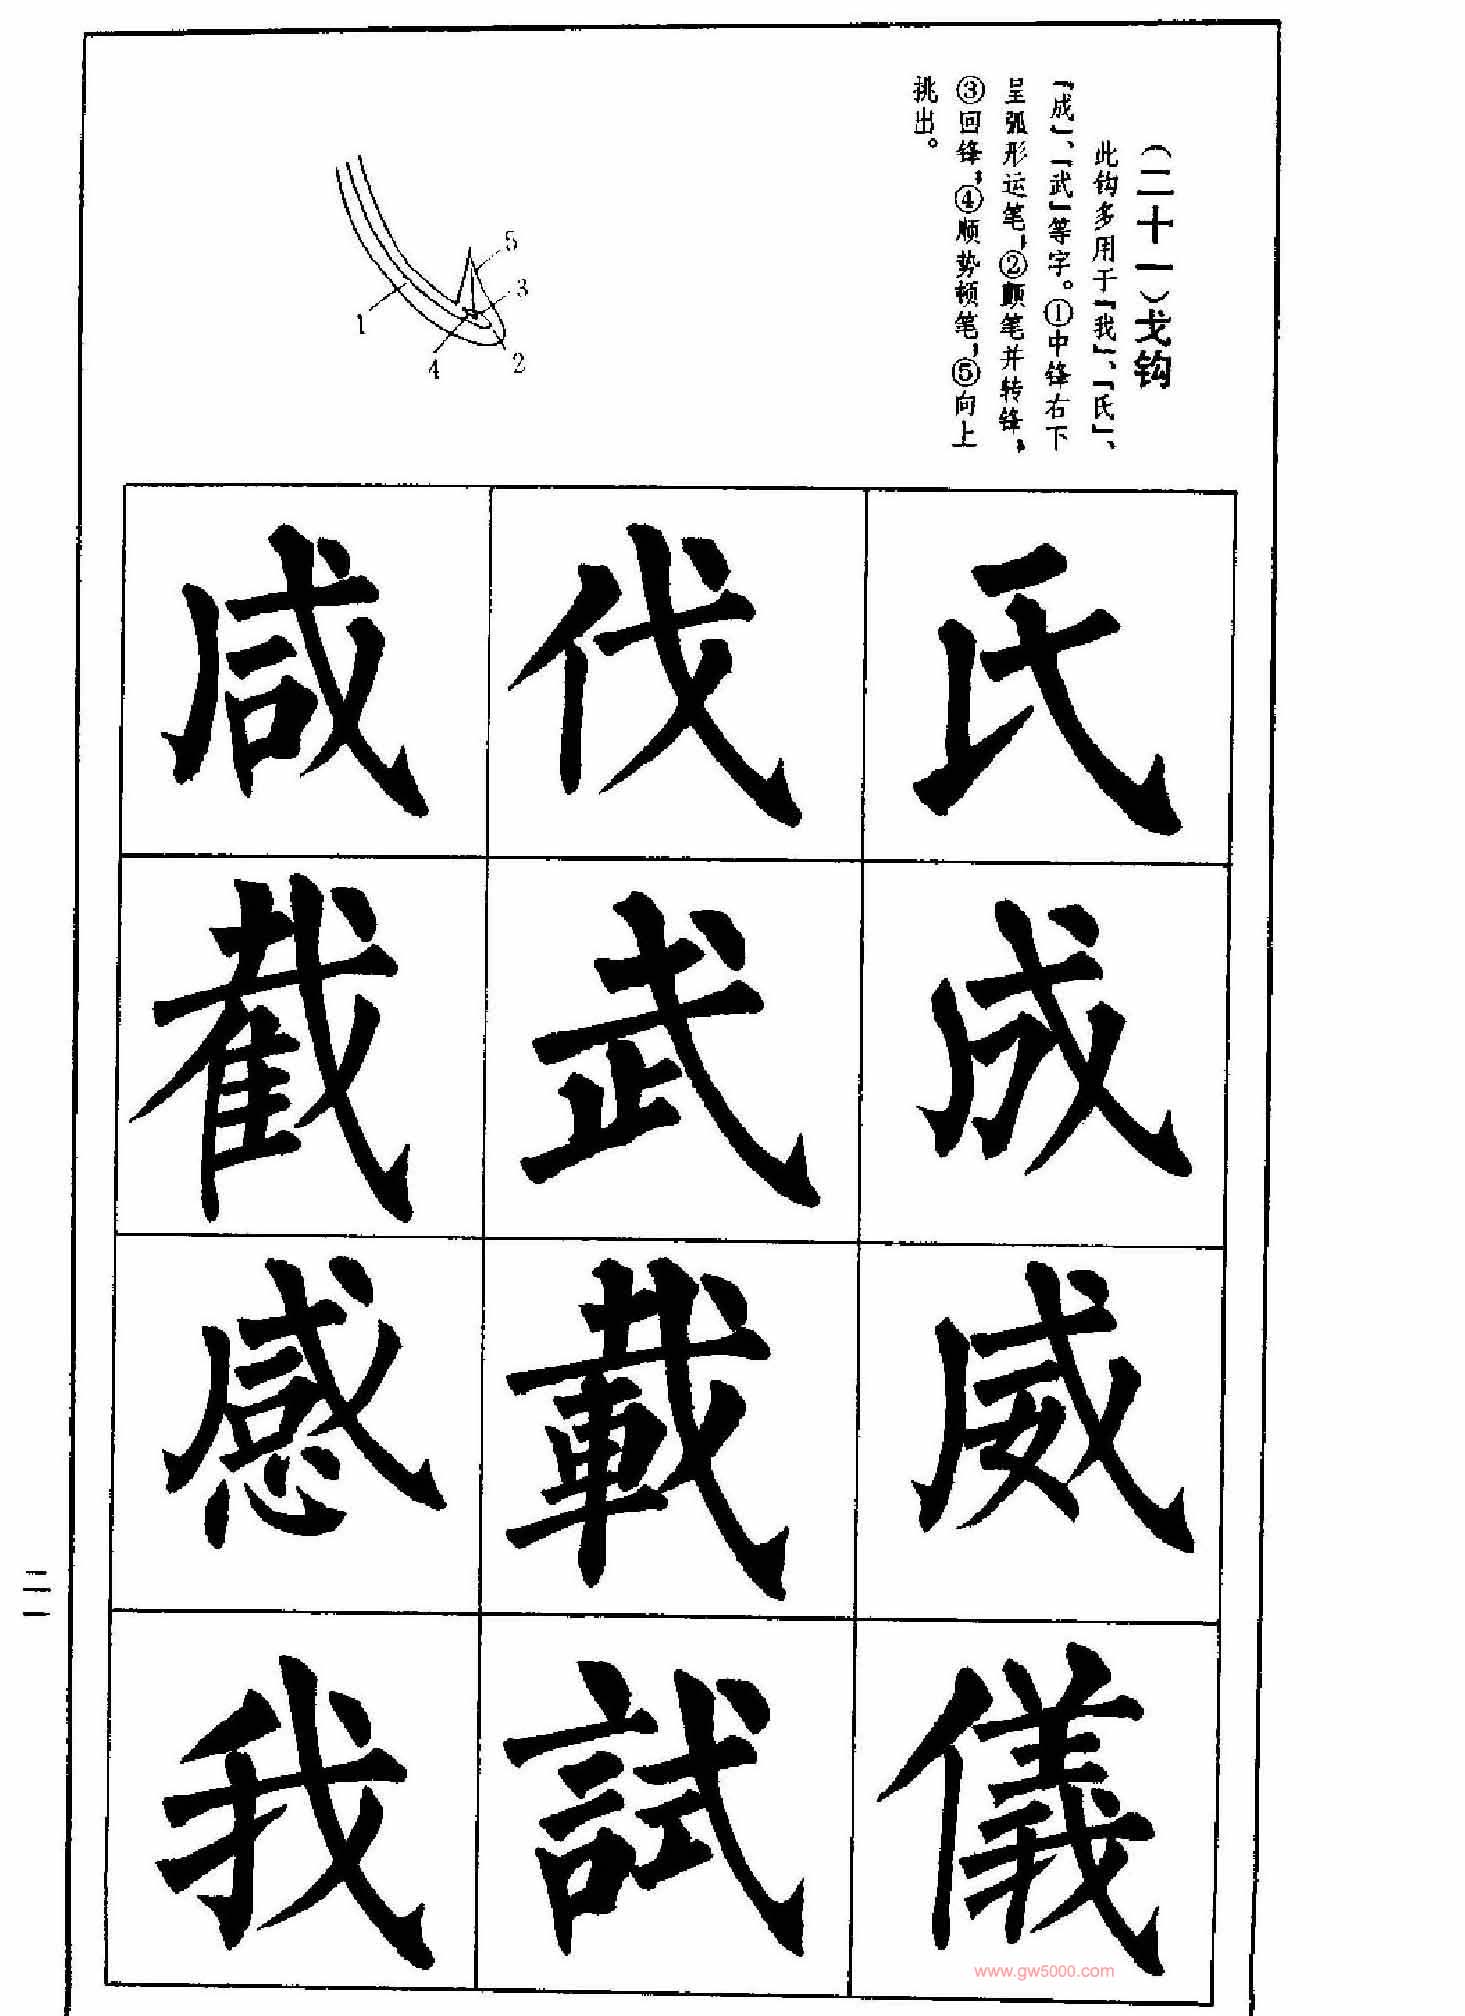 （二十一）戈钩
此钩多用于「我」、「氏」、
「成」、「武」等字。①中锋右下
呈弧形运笔；②顿笔并转锋；
③回锋；④顺势顿笔；⑤向上
挑出。
5
3
1
2
4
氏
成
威
儀
伐
武
載
試
咸
截
感
我
二一
www.gw5000.com